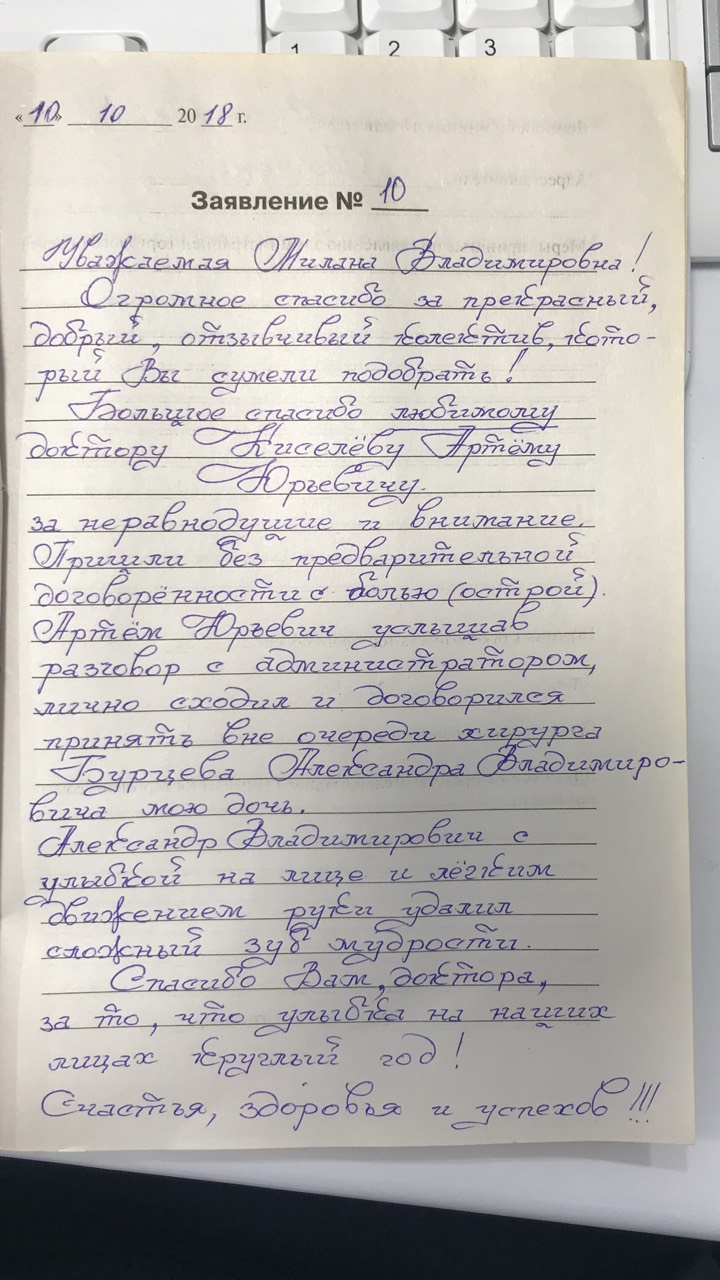 1 2 3
«10» 10 2018 г.
Заявление № 10
Уважаемая Милана Владимировна!
Огромное спасибо за прекрасный,
добрый, отзывчивый колектив, кото-
рый Вы сумели подобрать!
Большое спасибо любимому
доктору Киселёву Артёму
Юрьевичу.
за неравнодушие и внимание.
Пришли без предварительной
договорённости с болью (острой).
Артём Юрьевич услышав
разговор с администратором,
лично сходил и договорился
принять вне очереди хирурга
Бурцева Александра Владимиро-
вича мою дочь.
Александр Владимирович с
улыбкой на лице и лёгким
движением руки удалил
сложный зуб мудрости.
Спасибо Вам, доктора,
за то, что улыбка на наших
лицах круглый год!
Счастья, здоровья и успехов!!!